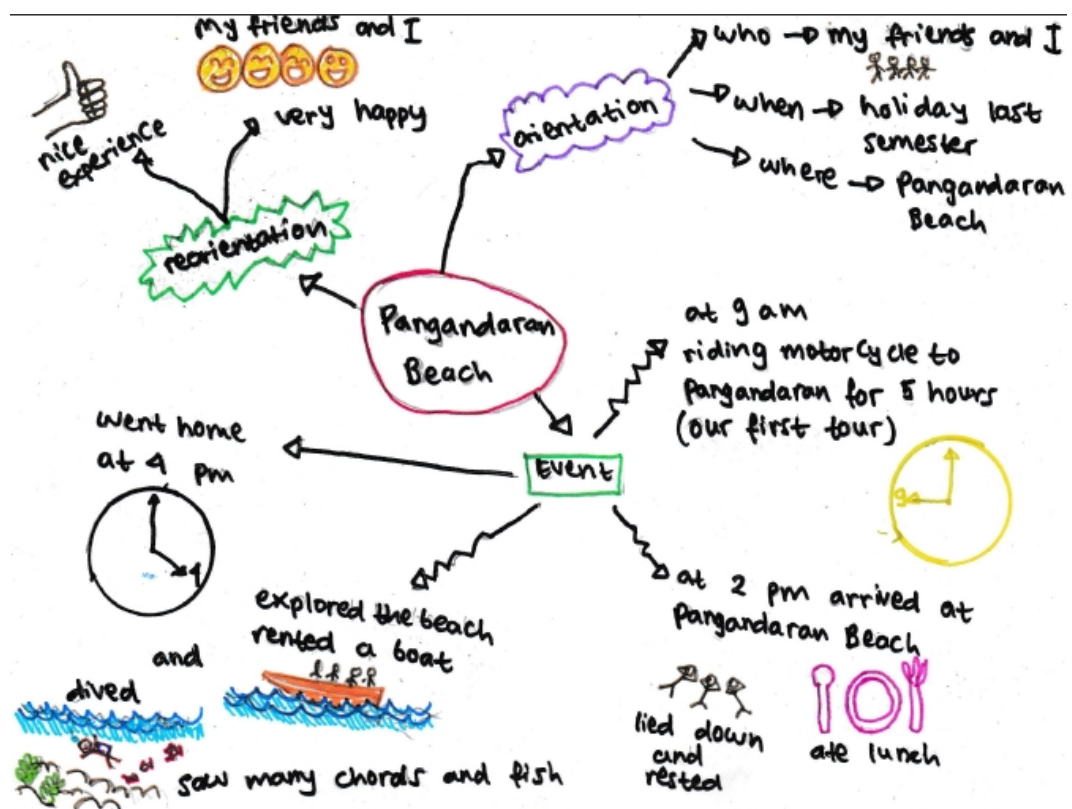 Pangandaran
Beach
orientation
who → my friends and I
when → holiday last
semester
where → Pangandaran
Beach
Event
at 9 am
riding motorcycle to
Pangandaran for 5 hours
(our first tour)
9
at 2 pm arrived at
Pangandaran Beach
lied down
and
rested
ate lunch
explored the beach
rented a boat
and
dived
saw many chords and fish
went home
at 4 pm
4
reorientation
my friends and I
very happy
nice
experience